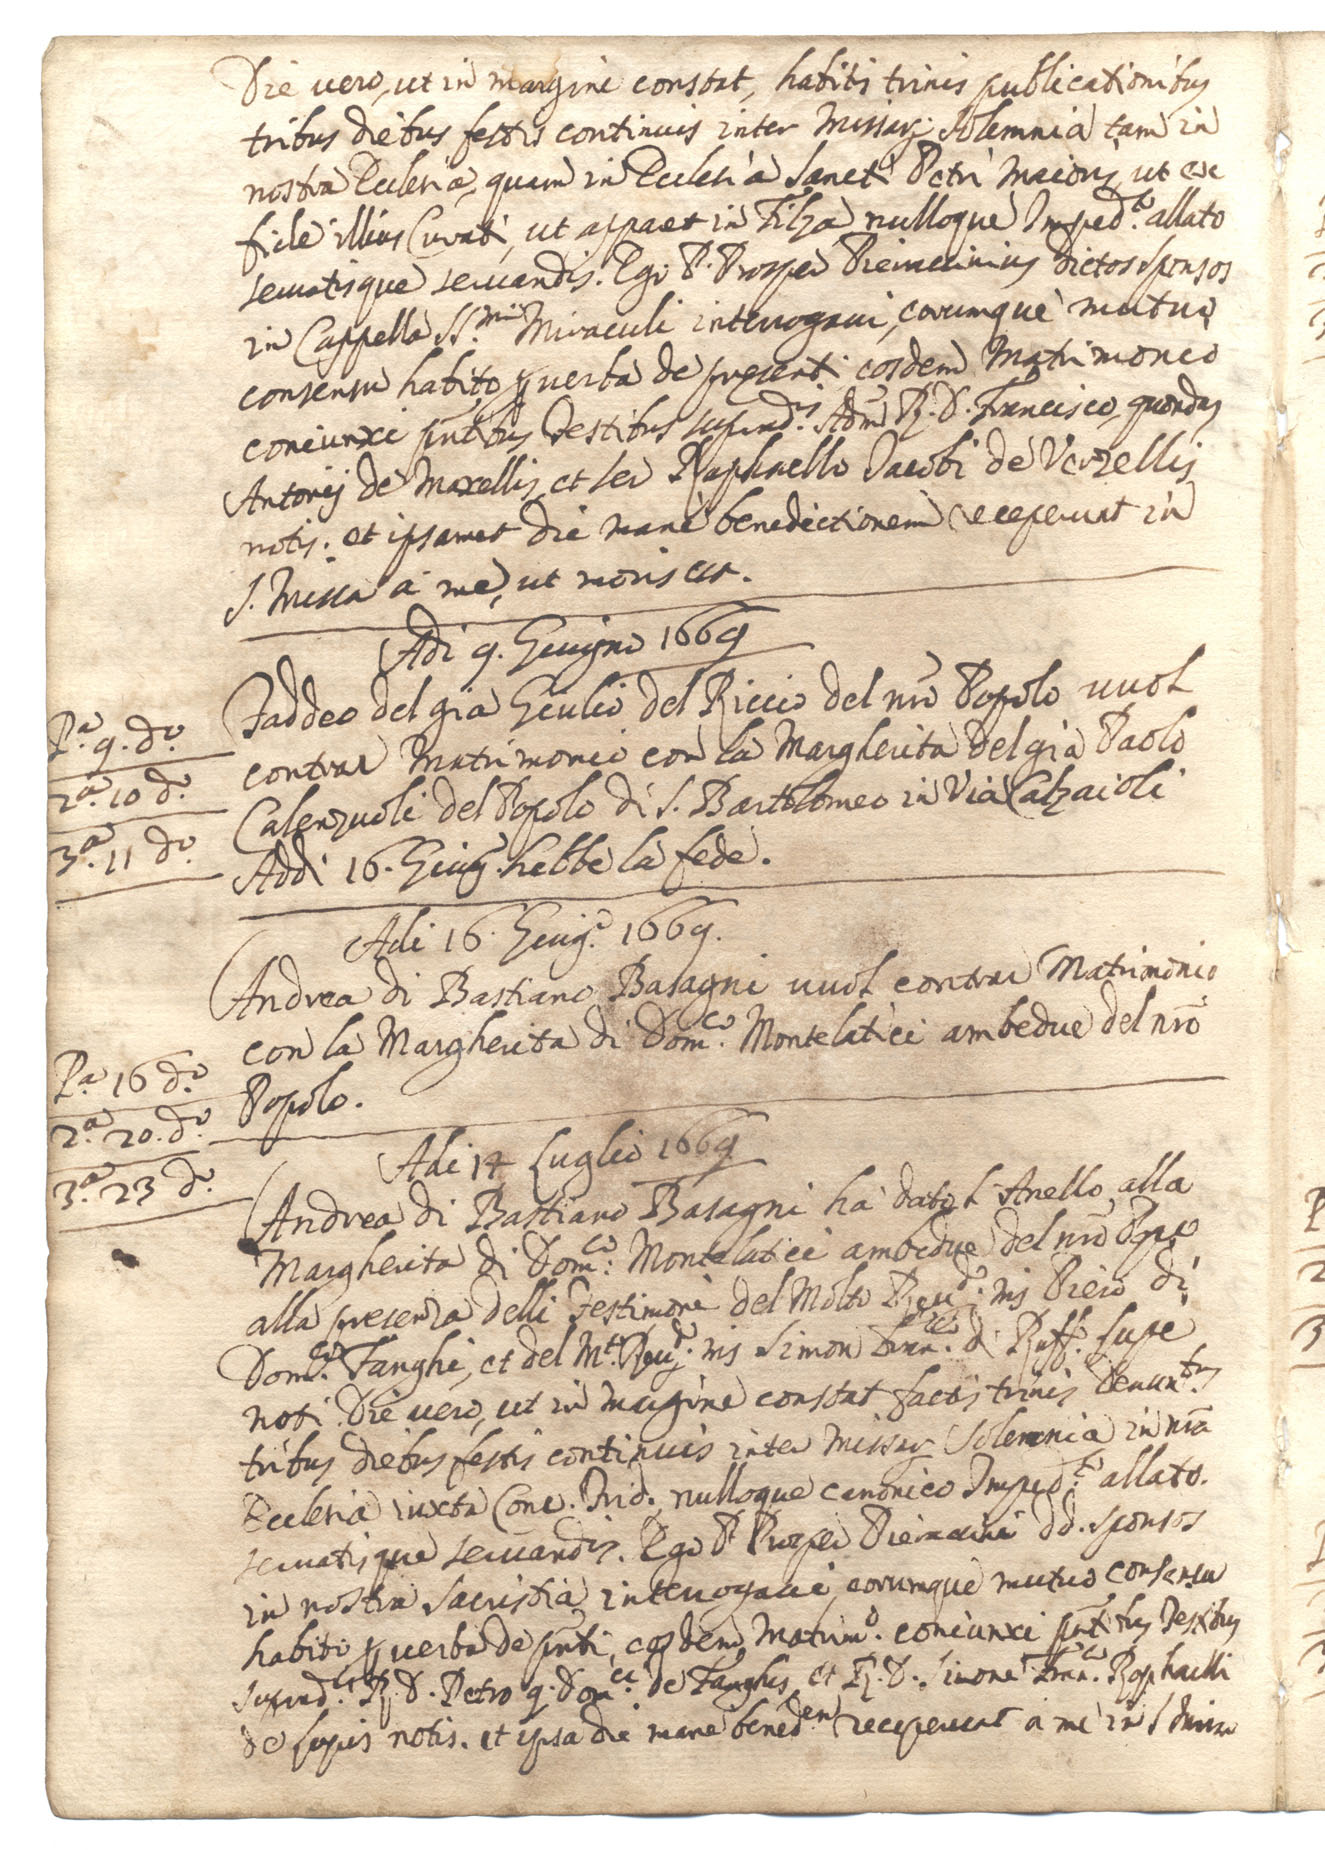 Die uero, ut in margine constat, habitis trinis publicationibus
tribus diebus festis continuis inter Missarũ Solemnia tam in
nostra Ecclesia, quam in Ecclesia Sancti Petri Maioris, ut ex
fide illius Curati, ut apparet in Filza nulloque Imped.to allato
seruatisque seruandis. Ego P. Prosper dictos sponsos
in Cappella SS.mi Miraculi interrogaui, eorumque mutuo
consensu habito p uerba de presenti eosdem Matrimonio
coniunxi pñtibus Testibus suprad.is Adm R. D. Francisco, quondam
Antonij de Maxellis, et ser Raphaello Jacobi de Verzellis
notis. et ipsamet die mane benedictionem receperunt in
S. Missa a me, ut moris est.
Adi 9. Giugno 1669
P.a 9. d.o
2.a 10 d.o
3.a 11 d.o
Taddeo del già Giulio del Riccio del nr̃o Popolo uuol
contrar Matrimonio con la Margherita del già Paolo
Calenzuoli del Popolo di S. Bartolomeo in Via Calzaioli
Addi 16. Giug. hebbe la fede.
Adi 16. Giug.o 1669.
P.a 16 d.o
2.a 20. d.o
3.a 23 d.o
Andrea di Bastiano Basagni uuol contrar Matrimonio
con la Margherita di Dom.co Montelatici ambedue del nr̃o
Popolo.
Adi 14 Luglio 1669
Andrea di Bastiano Basagni ha dato l'Anello alla
Margherita di Dom.co Montelatici ambedue del nr̃o Pop.o
alla presenza delli Testimoni del Molto Reu.do ms Piero di
Dom.co Fanghi, et del M.to Reu.do ms Simon Fran.co di Raff. Lupe
noti. Die uero, ut in margine constat factis trinis Denun.bus
tribus diebus festis continuis inter Missarũ Solemnia in nr̃a
Ecclesia iuxta Conc. Trid. nulloque canonico Imped.to allato.
seruatisque seruandis. Ego P. Prosper dd. sponsos
in nostra Sacristia interrogaui, eorumque mutuo consensu
habito p uerba de pñti, eosdem Matrim.o coniunxi pñtibus Testibus
suprad.is R. D. Petro q. Dom.ci de Fanghis et R. D. Simone Fran.co Raphaelli
de Lupis notis. et ipsa die mane bened.em receperunt a me in S Missa